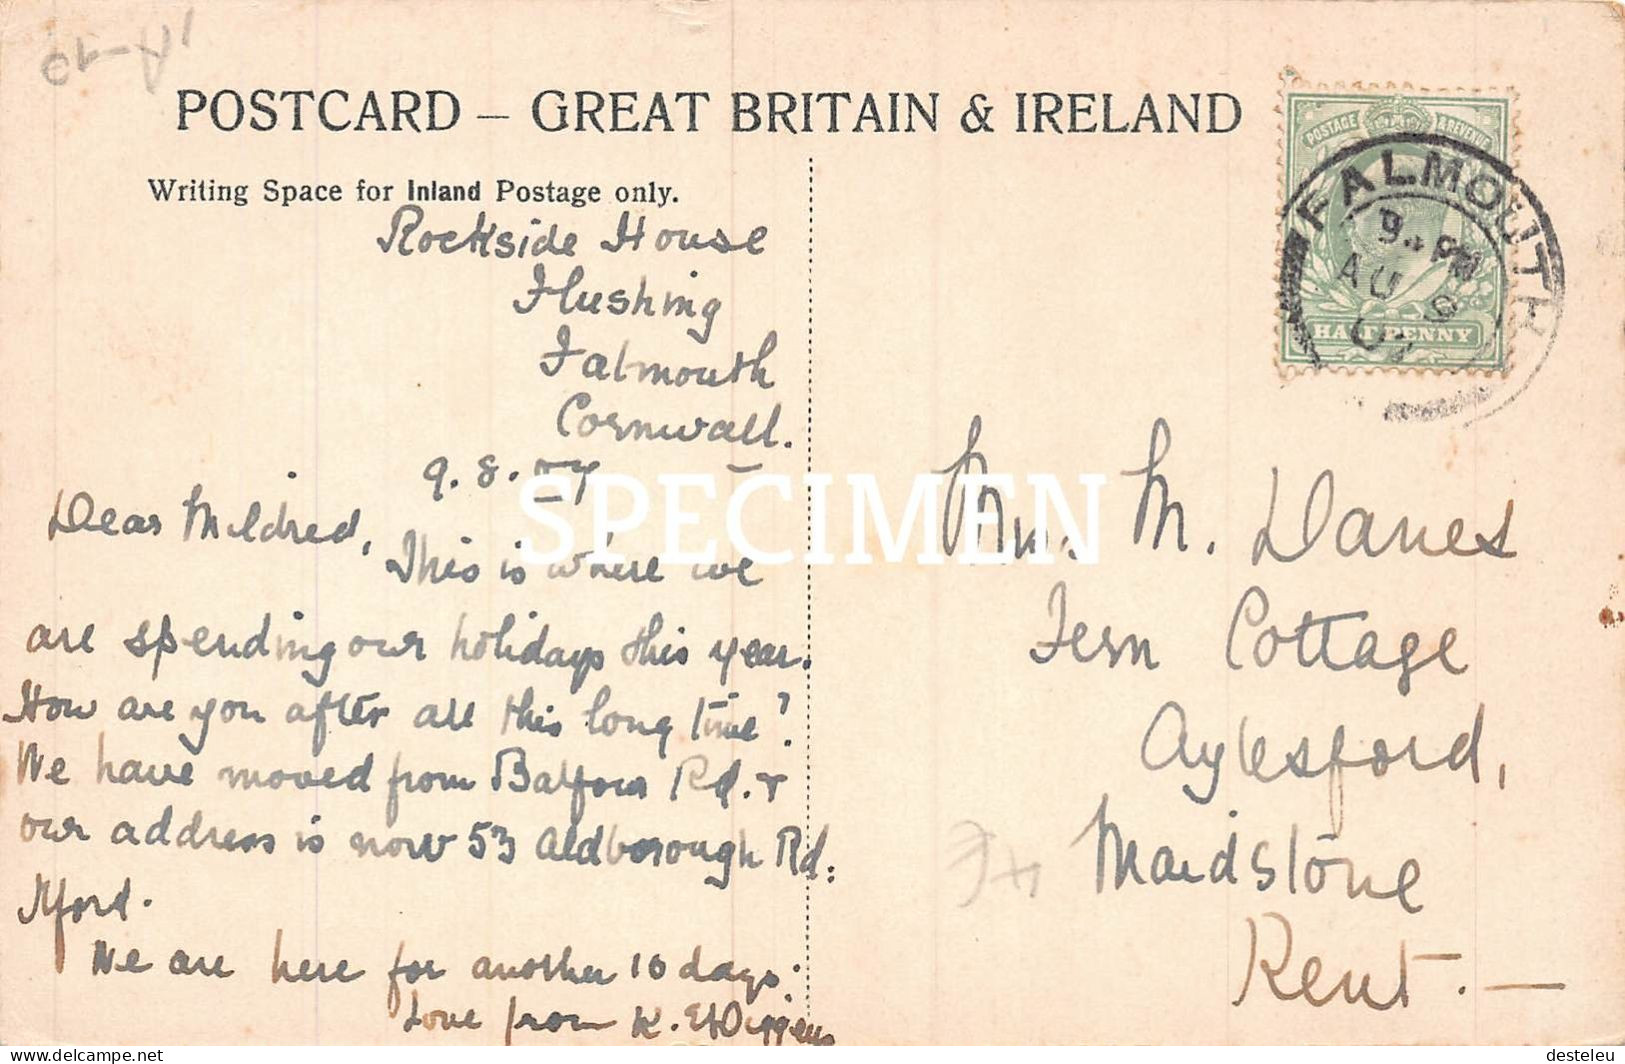 POSTCARD – GREAT BRITAIN & IRELAND
Writing Space for Inland Postage only.
Rockside House
Flushing
Falmouth
Cornwall.
9. 8. 07
Dear Mildred,
This is where we
are spending our holidays this year.
How are you after all this long time?
We have moved from Balfour Rd. +
our address is now 53 Aldborough Rd:
Ilford.
We are here for another 10 days.
Love from K.
POSTAGE & REVENUE
HALFPENNY
FALMOUTH
9 PM
AU 9
07
M. Danes
Fern Cottage
Aylesford,
Maidstone
Kent. —
SPECIMEN
delcampe.net
desteleu